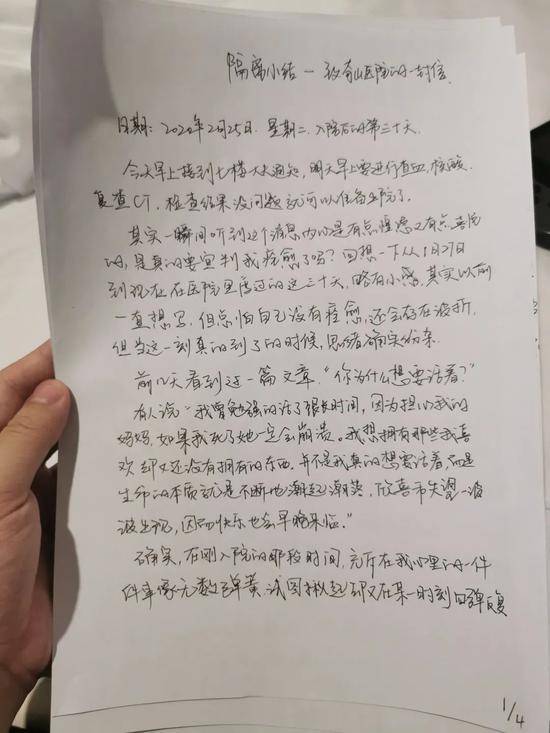 隔离小结 — 致奇山医院的一封信
日期：2020年2月25日 星期二 入院后的第三十天
今天早上接到七楼大夫通知，明天早上要进行查血，核酸
复查CT，检查结果没问题就可以准备出院了。
其实一瞬间听到这个消息内心是有点惶恐又有点喜悦
的，是真的要宣判我痊愈了吗？回想一下从1月27日
到现在在医院里度过的这三十天，略有小感，其实以前
一直想写，但总怕自己没有痊愈，还会存在波折，
但当这一刻真的到了的时候，思绪确实纷杂。
前几天看到过一篇文章，“你为什么想要活着？”
有人说“我曾勉强的活了很长时间，因为担心我的
妈妈，如果我死了她一定会崩溃。我想拥有那些我喜
欢却又还没有拥有的东西，并不是我真的想要活着，而是
生命的本质就是不断地潮起潮落，欣喜和失望一波
波出现，因而快乐也会早晚来临。”
确实，在刚入院的那段时间，充斥在我心里的一件
件事像无数弹簧，试图揪起却又在某一时刻回弹反复
1/4